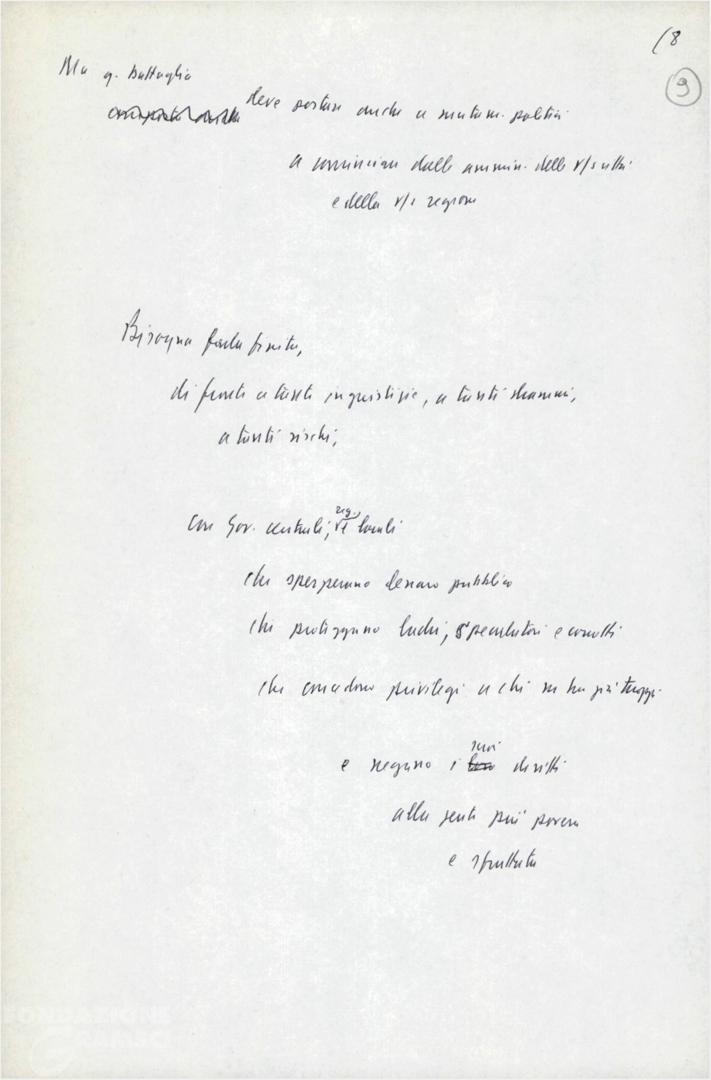 18
9
Ma q. battaglia
deve portare anche a mutam. politici
a cominciare dalle ammin. delle v/s città
e della v/s regione
Bisogna farla finita,
di fronte a tante ingiustizie, a tanti drammi,
a tanti rischi,
reg.,
con Gov. centrali, e locali
che sperperano denaro pubblico
che proteggono ladri, speculatori e corrotti
che concedono privilegi a chi ne ha già troppi
suoi
e negano i loro diritti
alla gente più povera
e sfruttata
FONDAZIONE
GRAMSCI